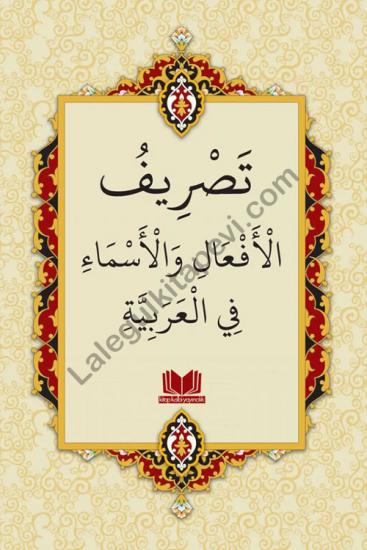 تَصْرِيفُ
الْأَفْعَالِ وَالْأَسْمَاءِ
فِي الْعَرَبِيَّةِ
kitap kalbi yayıncılık
Lalegulkitabevi.com